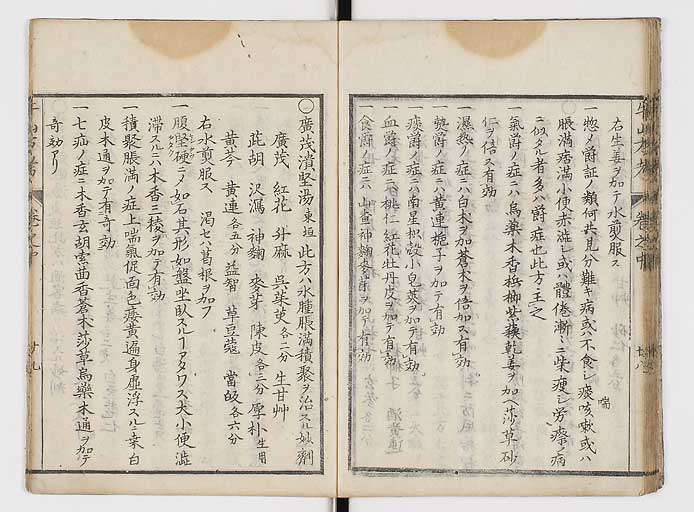 右生姜ヲ加テ水剪服ス
一惣ノ爵証ノ類何共見分難キ病或ハ不食シ痰咳嗽或ハ
喘
脹満痞満小便赤澁シ或ハ體倦漸ニ柴瘦シ労瘵ノ病
ニ似タル者多ハ爵症也此方主之
一氣爵ノ症ニハ烏藥木香檳榔紫蘓乾姜ヲ加ヘ莎草砂
仁ヲ倍ス有効
一濕熱ノ症ニハ白木ヲ加蒼木ヲ倍加ス有効
一熱爵ノ症ニハ黄連梔子ヲ加テ有効
一痰爵ノ症ニハ南星枳殻小皂莢ヲ加テ有効
一血爵ノ症ニハ桃仁紅花牡丹皮ヲ加テ有効
一食爵ノ症ニハ山査神麹麥芽ヲ加テ有効
牛山方考 巻之中
廿八
○廣茂潰堅湯 東垣 此方ハ水腫脹満積聚ヲ治スル妙劑
廣茂 紅花 升麻 呉茱萸各二分 生甘艸
茈胡 沢瀉 神麹 麥芽 陳皮各三分 厚朴生用
黄芩 黄連各五分 益智 草豆蔲 當皈各六分
右水剪服ス 渇セハ葛根ヲ加フ
一腹堅硬ニノ如石其形如盤坐臥スルーアタワス大小便澁
滞スルニハ木香三稜ヲ加テ有効
一積聚脹満ノ症上喘氣促面色痿黄遍身虚浮スルニ桒白
皮木通ヲ加テ有奇効
一七疝ノ症ニ木香玄胡索茴香蒼木莎草烏藥木通ヲ加テ
奇効アリ
巻之中
廿九